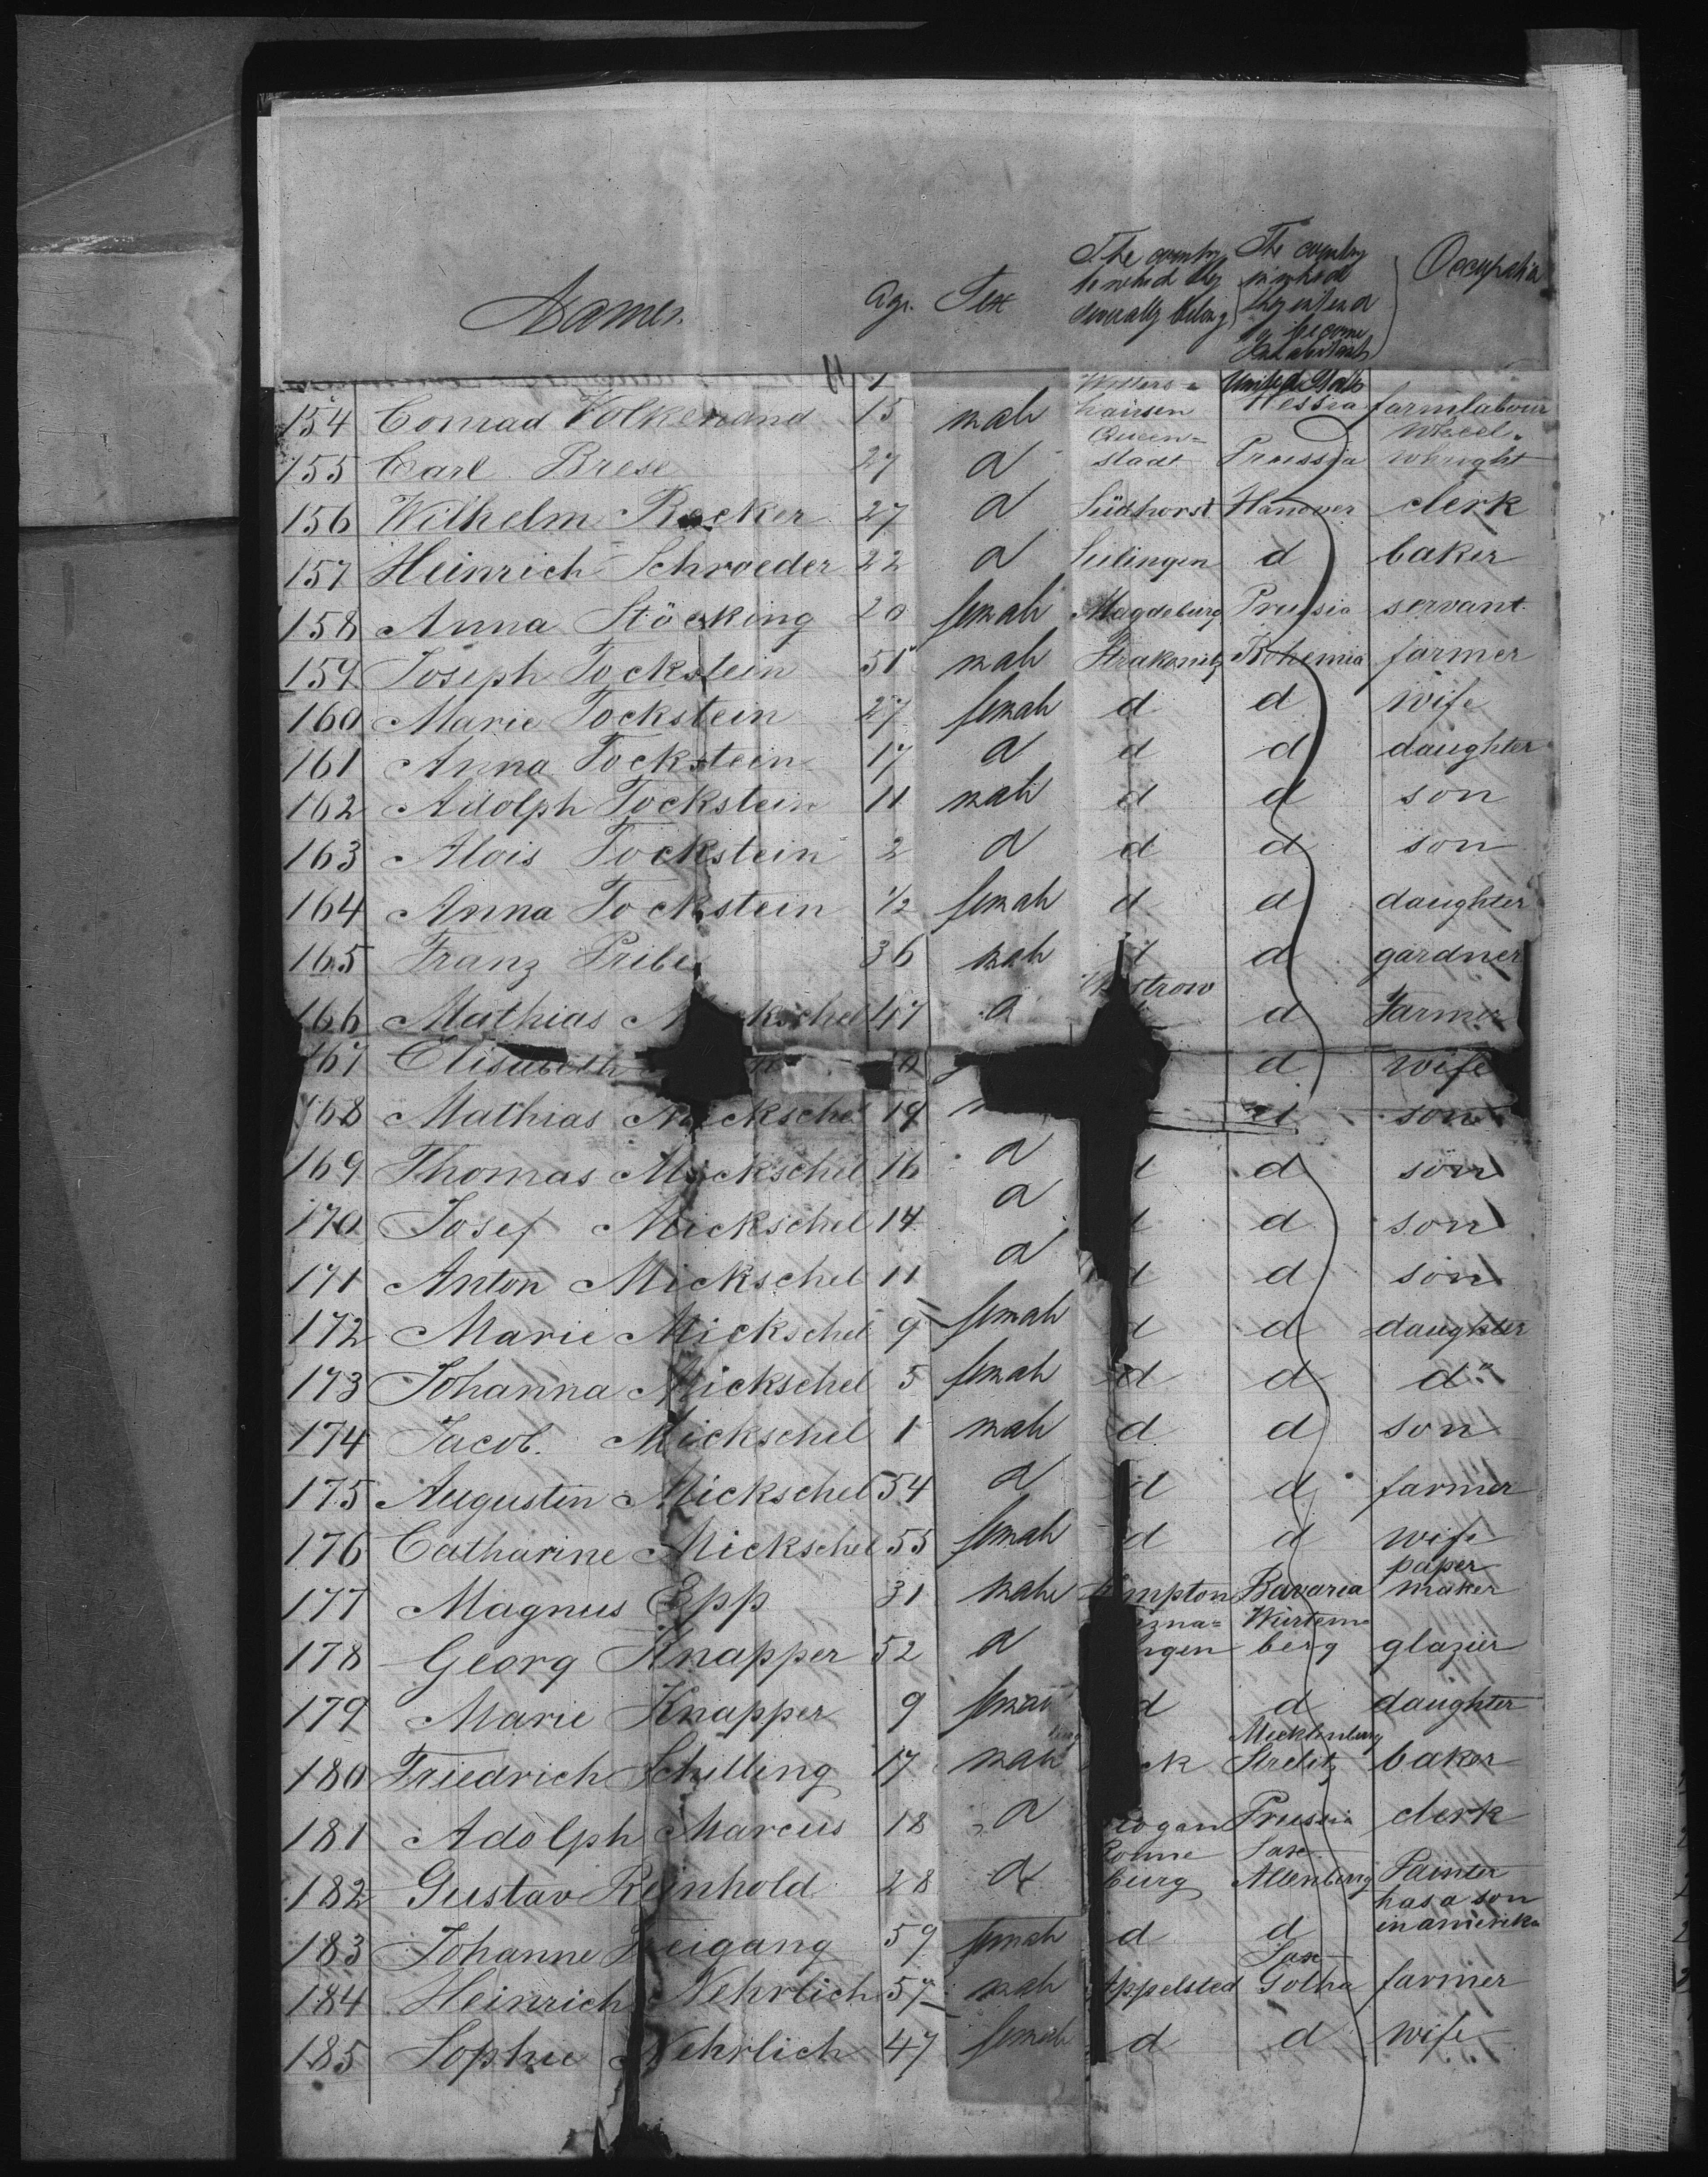 Names.
Age. Sex
The country to which they severally belong
The country in which they intend to become Inhabitants
Occupation
United States
154 Conrad Volkenand 15 male hausen Hessia farmlabour
155 Carl Brese 27 d Queen= stadt Prussia Wheel- whright
156 Wilhelm Becker 27 d Südhorst Hanover clerk
157 Heinrich Schroeder 22 d Sulingen d baker
158 Anna Stöcking 20 female Magdeburg Prussia servant
159 Joseph Tockstein 51 male Strakonitz Bohemia farmer
160 Marie Tockstein 27 female d d wife
161 Anna Tockstein 17 d d d daughter
162 Adolph Tockstein 11 male d d son
163 Alois Tockstein 2 d d d son
164 Anna Tockstein 1/2 female d d daughter
165 Franz Pribe 36 male d d gardner
166 Mathias 47 d d Farmer
167 Elisabeth d wife
168 Mathias Mickschel 19 d son
169 Thomas Mickschel 16 d d son
170 Josef Mickschel 14 d d son
171 Anton Mickschel 11 d d d son
172 Marie Mickschel 9 female d d daughter
173 Johanna Mickschel 5 female d d do
174 Jacob. Mickschel 1 male d d son
175 Augustin Mickschel 54 d d d farmer
176 Catharine Mickschel 55 female d d wife
177 Magnus Epp 31 male Bavaria paper maker
178 Georg Knapper 52 d Würtem= berg glazier
179 Marie Knapper 9 female d d daughter
180 Friedrich Schilling 17 male Mecklenburg Strelitz baker
181 Adolph Marcus 18 d Prussia clerk
182 Gustav Reinhold 28 d burg Saxe. Altenburg Painter
183 Johanne Freigang 59 female d d has a son in amerika
184 Heinrich Nehrlich 57 male Appelsted Sax Gotha farmer
185 Sophie Nehrlich 47 female d d wife